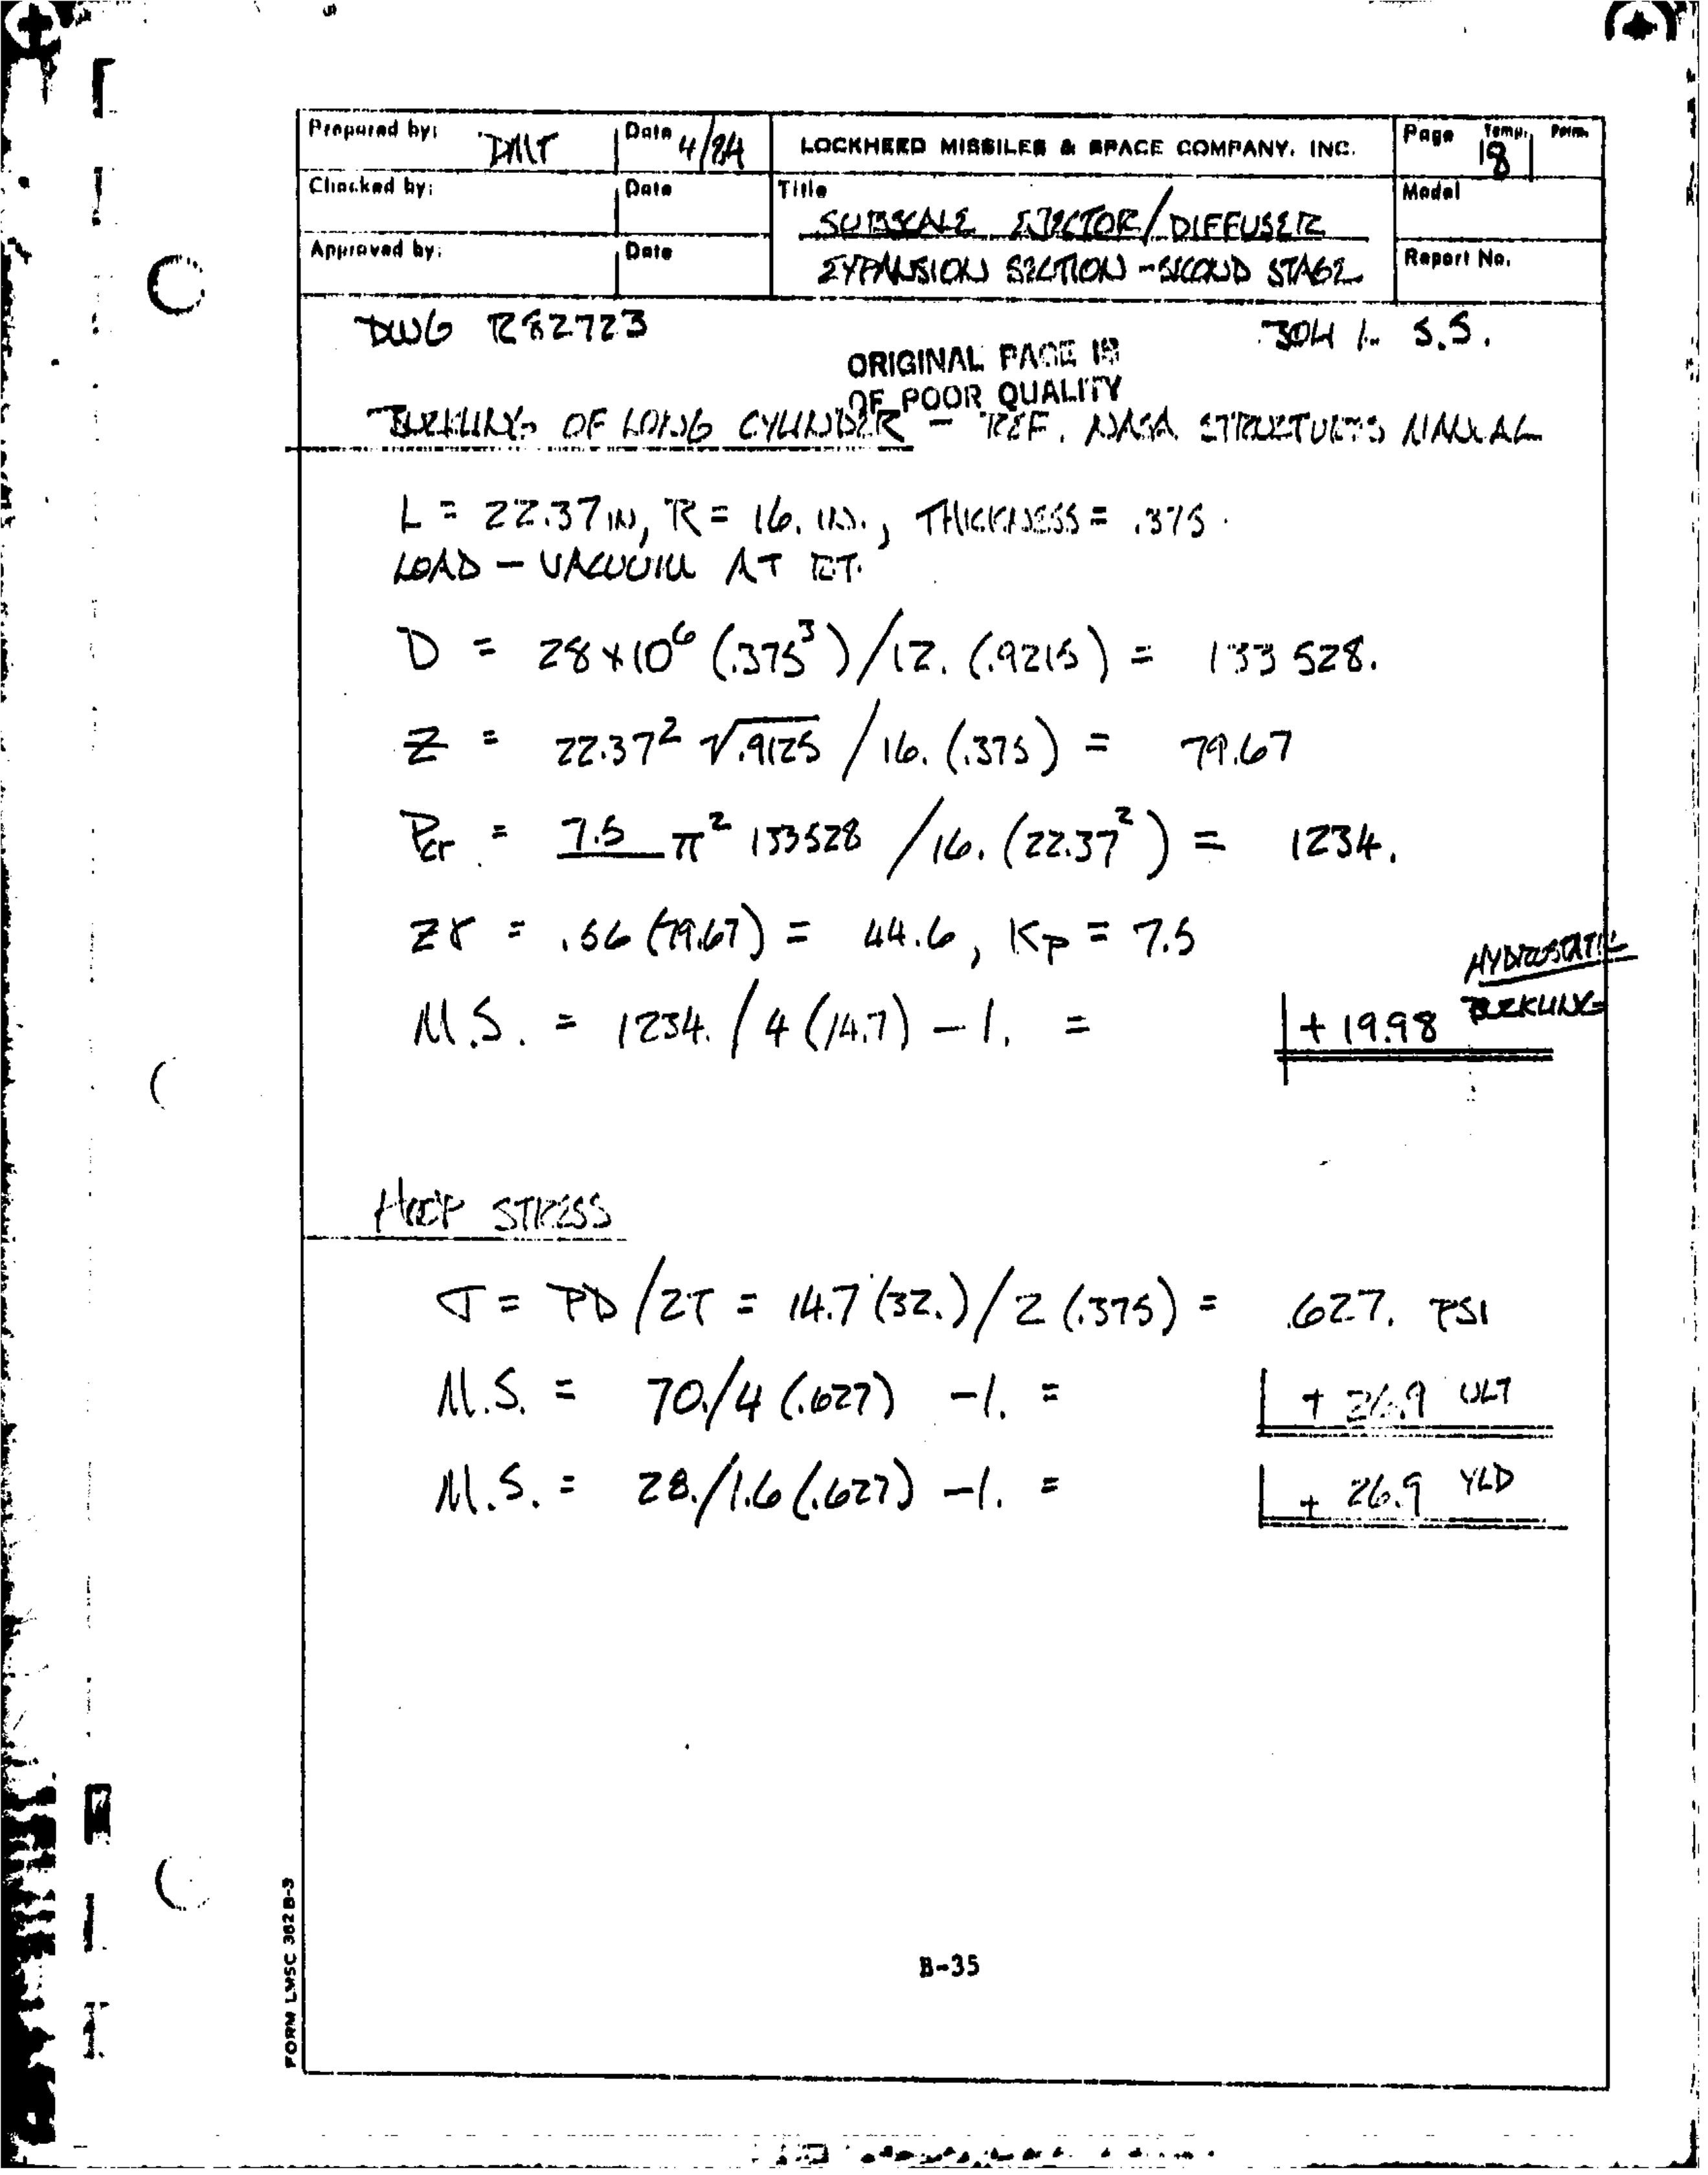 Prepared by: DMT Date 4/84 LOCKHEED MISSILES & SPACE COMPANY, INC. Page Temp. 18 Perm.
Checked by: Date Title SUBSCALE EJECTOR/DIFFUSER Model
Approved by: Date EXPANSION SECTION - SECOND STAGE Report No.
DWG R82723 304 L S.S.
ORIGINAL PAGE IS
OF POOR QUALITY
BUCKLING OF LONG CYLINDER - REF. NASA STRUCTURES MANUAL
L = 22.37 IN, R = 16. IN., THICKNESS = .375
LOAD - VACUUM AT RT.
D = 28 x 10⁶ (.375³)/12. (.9215) = 133 528.
Z = 22.37² √.9125 / 16. (.375) = 79.67
Pcr = 7.5 π² 133528 / 16. (22.37²) = 1234.
Zγ = .56 (79.67) = 44.6, Kp = 7.5
HYDROSTATIC
BUCKLING
M.S. = 1234. / 4 (14.7) - 1. = + 19.98
HOOP STRESS
σ = PD/2T = 14.7 (32.)/2 (.375) = 627. PSI
M.S. = 70./4 (.627) -1. = + 26.9 ULT
M.S. = 28./1.6 (.627) -1. = + 26.9 YLD
B-35
FORM LMSC 362 B-3